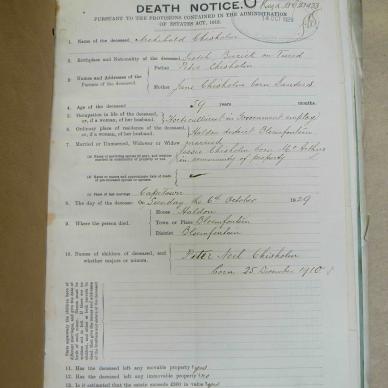 DEATH NOTICE.
PURSUANT TO THE PROVISIONS CONTAINED IN THE ADMINISTRATION
OF ESTATES ACT, 1913.
14 OCT 1929
1. Name of the deceased Archibald Chisholm
2. Birthplace and Nationality of the deceased Scotch Berwick on Tweed
3. Names and Addresses of the Parents of the deceased
Father Peter Chisholm
Mother Jane Chisholm born Sanders
4. Age of the deceased 59 years months.
5. Occupation in life of the deceased, or, if a woman, of her husband. Horticulturist in Government employ
6. Ordinary place of residence of the deceased, or, if a woman, of her husband. Haldon district Bloemfontein
7. Married or Unmarried, Widower or Widow married
Jessie Chisholm born McArthur
in community of property
(c) Place of last marriage Capetown
8. The day of the deceased On Sunday the 6th October 1929
9. Where the person died.
House Haldon
Town or Place Bloemfontein
District Bloemfontein
10. Names of children of deceased, and whether majors or minors.
Peter Noel Chisholm
born 25 December 1910
11. Has the deceased left any movable property? yes
12. Has the deceased left any immovable property? no
13. Is it estimated that the estate exceeds £300 in value? yes